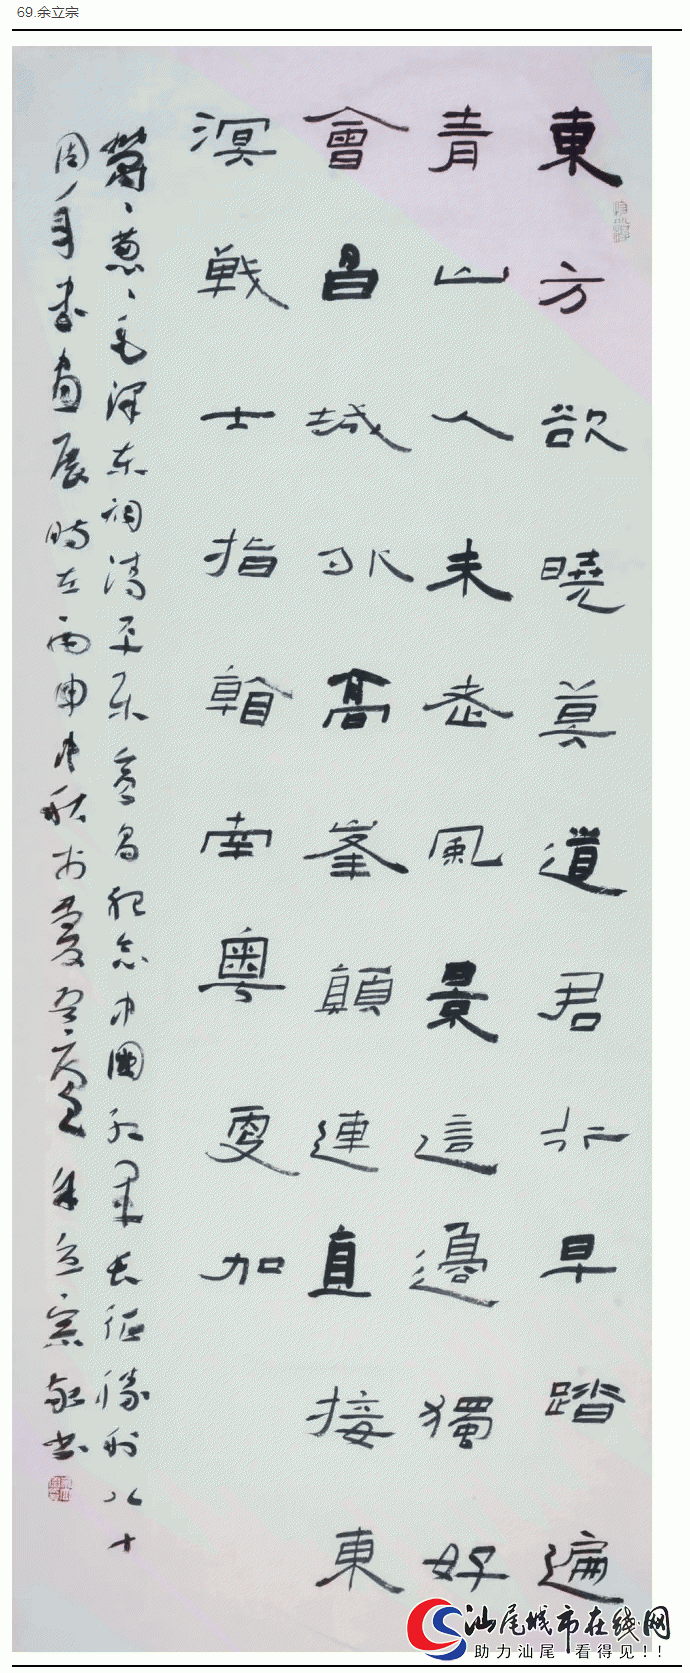 69.余立宗
東方欲曉莫道君行早踏遍
青山人未老風景這邊獨好
會昌城外高峯顛連直接東
溟戰士指看南粵更加
鬱、蔥、毛澤东詞清平乐會昌紀念中國红軍长征勝利八十
周年书画展時在丙申中秋於
余立宗敬书
汕尾城市在线网
助力汕尾 看得见!!